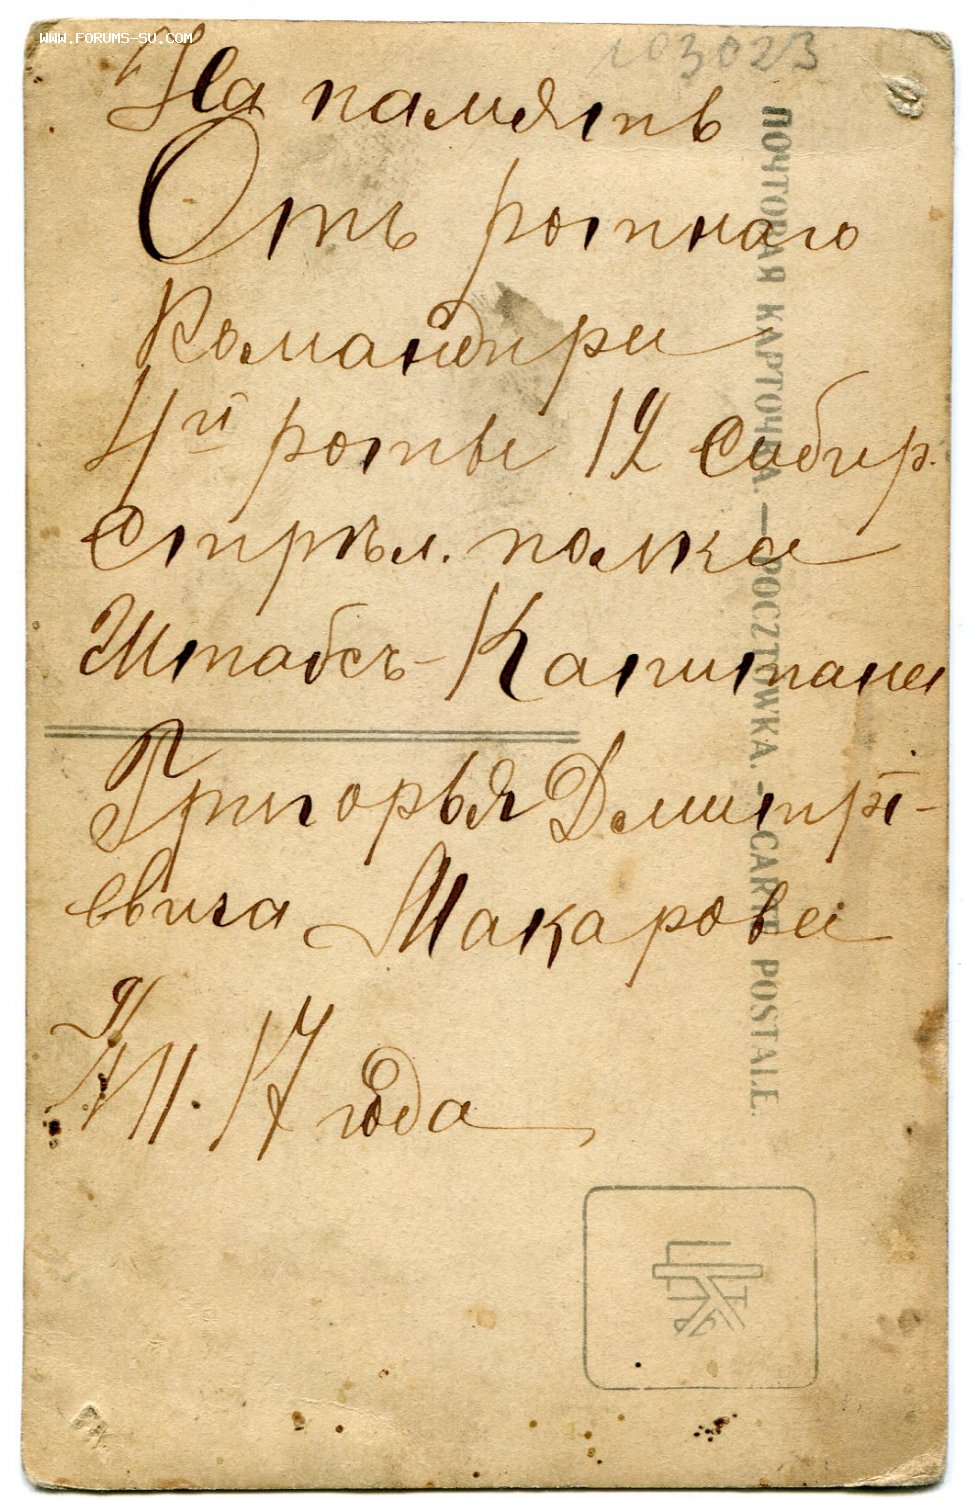 WWW.FORUMS-SU.COM
103023
На память
Отъ ротнаго
Командира
4й роты 12 Сибир.
Стрѣл. полка
Штабсъ-Капитана
Григорья Дмитрі-
евича Макарова
17 года
ПОЧТОВАЯ КАРТОЧКА. — POCZTÓWKA. — CARTE POSTALE.